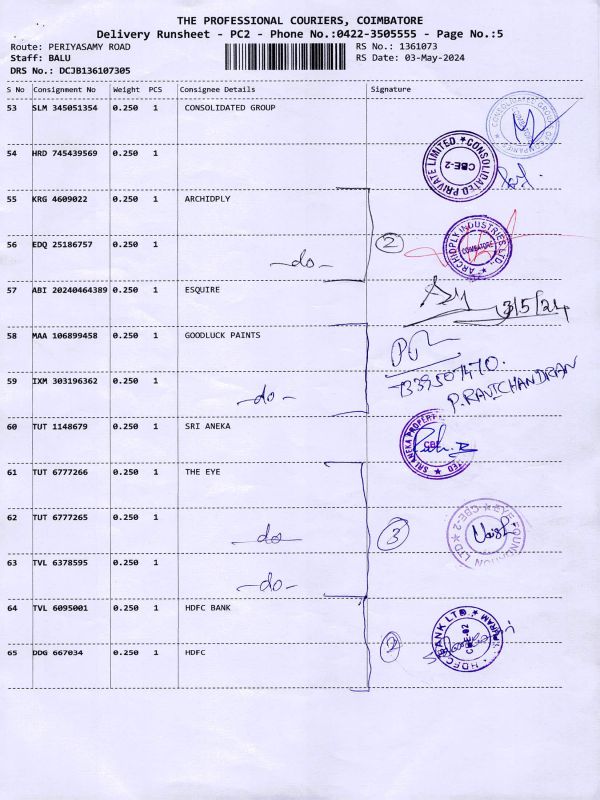 THE PROFESSIONAL COURIERS, COIMBATORE
Delivery Runsheet - PC2 - Phone No.:0422-3505555 - Page No.:5
Route: PERIYASAMY ROAD RS No.: 1361073
Staff: BALU RS Date: 03-May-2024
DRS No.: DCJB136107305
S No Consignment No Weight PCS Consignee Details Signature
53 SLM 345051354 0.250 1 CONSOLIDATED GROUP
CONSOLIDATED GROUP OF COMPANIES
54 HRD 745439569 0.250 1
CONSOLIDATED PRIVATE LIMITED CBE-2
55 KRG 4609022 0.250 1 ARCHIDPLY
ARCHIDPLY INDUSTRIES LTD. COIMBATORE
56 EDQ 25186757 0.250 1 -do- 2
57 ABI 20240464389 0.250 1 ESQUIRE
3/5/24
58 MAA 106899458 0.250 1 GOODLUCK PAINTS
59 IXM 303196362 0.250 1 -do-
P.RAVICHANDRAN
60 TUT 1148679 0.250 1 SRI ANEKA
SRI ANEKA CBE
61 TUT 6777266 0.250 1 THE EYE
62 TUT 6777265 0.250 1 -do- 3
EYE FOUNDATION LTD CBE-2
63 TVL 6378595 0.250 1 -do-
64 TVL 6095001 0.250 1 HDFC BANK
HDFC BANK LTD.
65 DDG 667034 0.250 1 HDFC 2